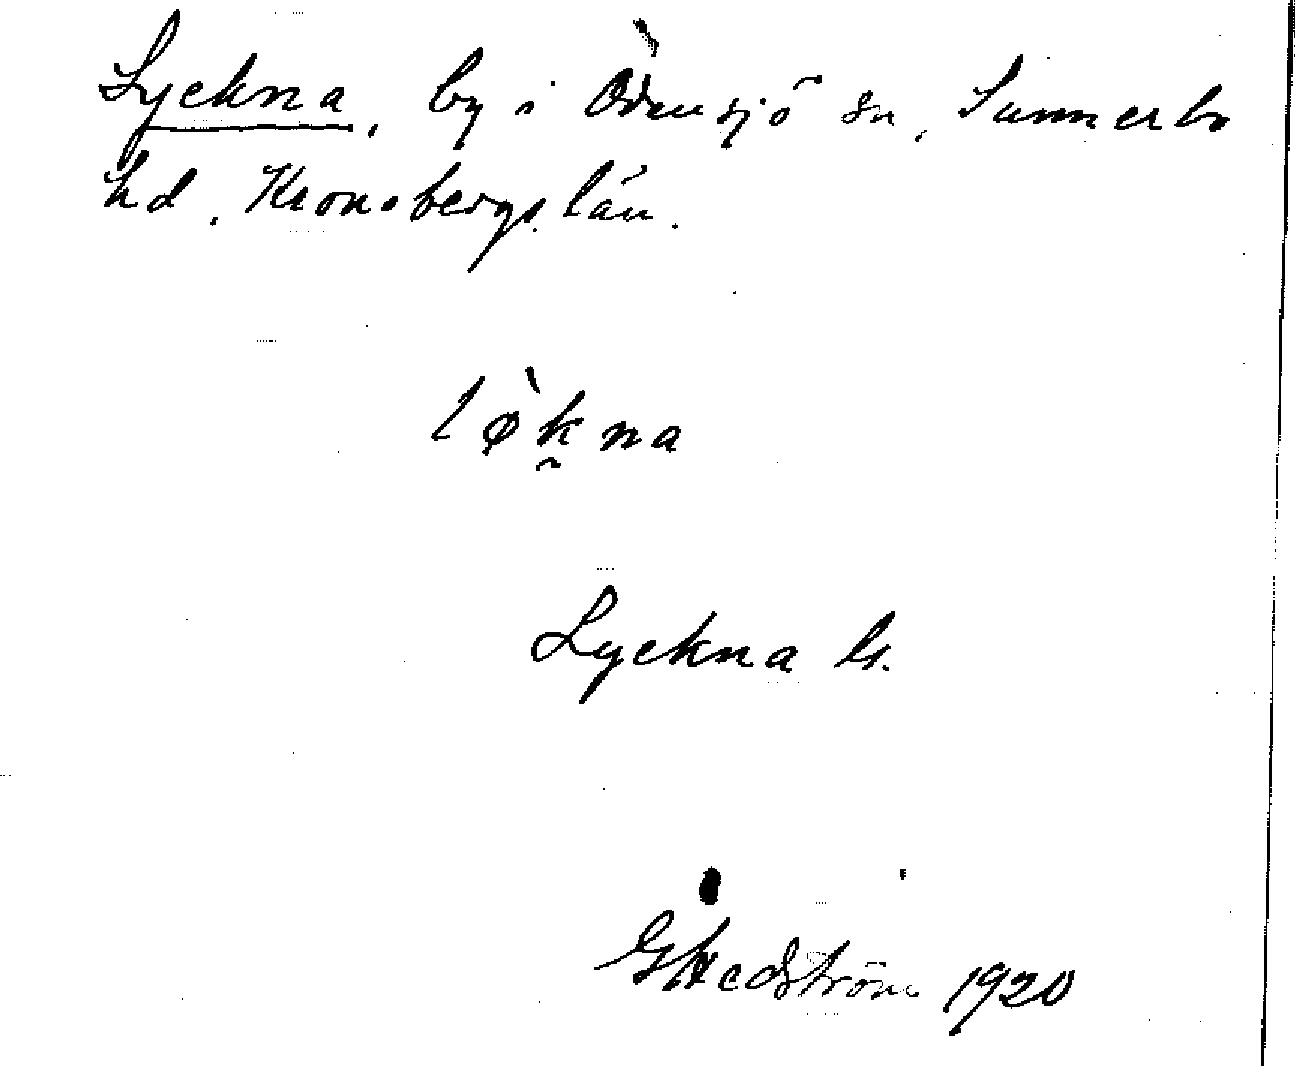 Lyckna, by i Odensjö sn, Sunnerbo
hd. Kronobergs län.
lø̀kna
Lyckna G.
G Hedström 1920